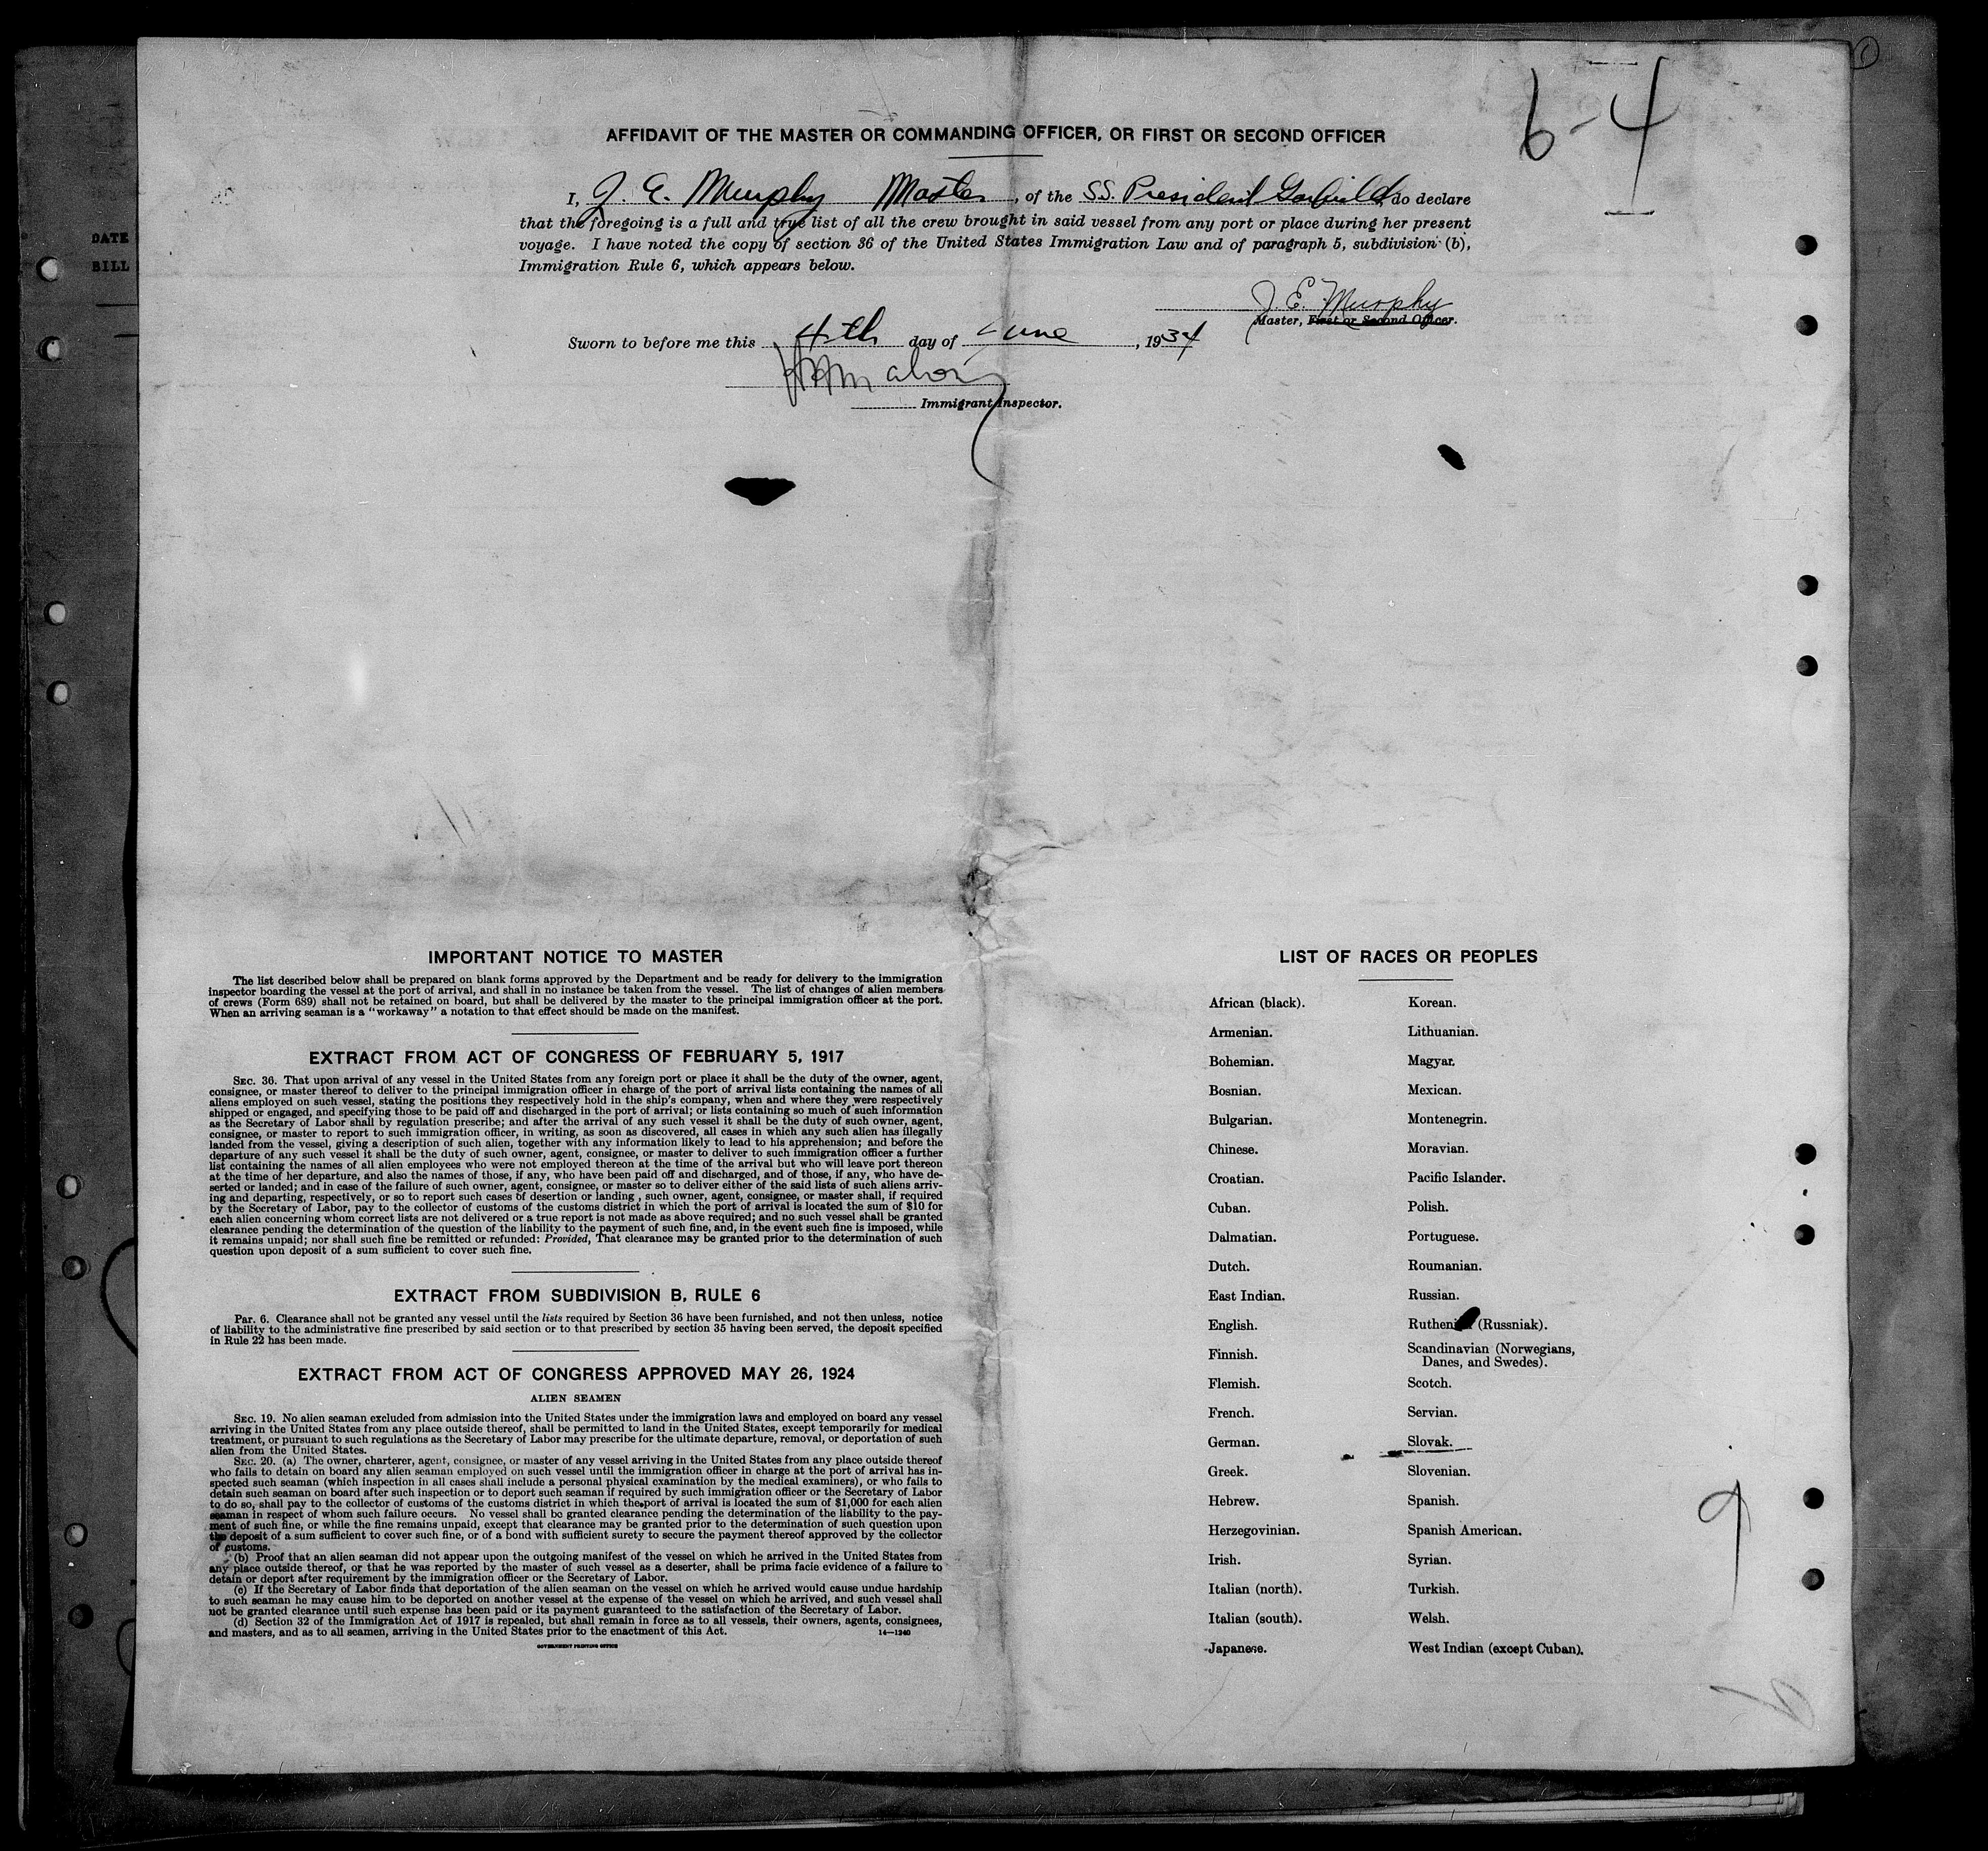 DATE
BILL
6-4
AFFIDAVIT OF THE MASTER OR COMMANDING OFFICER, OR FIRST OR SECOND OFFICER
I, J. E. Murphy Master, of the SS. President Garfield, do declare
that the foregoing is a full and true list of all the crew brought in said vessel from any port or place during her present
voyage. I have noted the copy of section 36 of the United States Immigration Law and of paragraph 5, subdivision (b),
Immigration Rule 6, which appears below.
J. E. Murphy
Master, First or Second Officer.
Sworn to before me this 4th day of June, 1934
Immigrant Inspector.
IMPORTANT NOTICE TO MASTER
The list described below shall be prepared on blank forms approved by the Department and be ready for delivery to the immigration
inspector boarding the vessel at the port of arrival, and shall in no instance be taken from the vessel. The list of changes of alien members
of crews (Form 689) shall not be retained on board, but shall be delivered by the master to the principal immigration officer at the port.
When an arriving seaman is a "workaway" a notation to that effect should be made on the manifest.
EXTRACT FROM ACT OF CONGRESS OF FEBRUARY 5, 1917
SEC. 36. That upon arrival of any vessel in the United States from any foreign port or place it shall be the duty of the owner, agent,
consignee, or master thereof to deliver to the principal immigration officer in charge of the port of arrival lists containing the names of all
aliens employed on such vessel, stating the positions they respectively hold in the ship's company, when and where they were respectively
shipped or engaged, and specifying those to be paid off and discharged in the port of arrival; or lists containing so much of such information
as the Secretary of Labor shall by regulation prescribe; and after the arrival of any such vessel it shall be the duty of such owner, agent,
consignee, or master to report to such immigration officer, in writing, as soon as discovered, all cases in which any such alien has illegally
landed from the vessel, giving a description of such alien, together with any information likely to lead to his apprehension; and before the
departure of any such vessel it shall be the duty of such owner, agent, consignee, or master to deliver to such immigration officer a further
list containing the names of all alien employees who were not employed thereon at the time of the arrival but who will leave port thereon
at the time of her departure, and also the names of those, if any, who have been paid off and discharged, and of those, if any, who have de-
serted or landed; and in case of the failure of such owner, agent, consignee, or master so to deliver either of the said lists of such aliens arriv-
ing and departing, respectively, or so to report such cases of desertion or landing, such owner, agent, consignee, or master shall, if required
by the Secretary of Labor, pay to the collector of customs of the customs district in which the port of arrival is located the sum of $10 for
each alien concerning whom correct lists are not delivered or a true report is not made as above required; and no such vessel shall be granted
clearance pending the determination of the question of the liability to the payment of such fine, and, in the event such fine is imposed, while
it remains unpaid; nor shall such fine be remitted or refunded: Provided, That clearance may be granted prior to the determination of such
question upon deposit of a sum sufficient to cover such fine.
EXTRACT FROM SUBDIVISION B, RULE 6
Par. 6. Clearance shall not be granted any vessel until the lists required by Section 36 have been furnished, and not then unless, notice
of liability to the administrative fine prescribed by said section or to that prescribed by section 35 having been served, the deposit specified
in Rule 22 has been made.
EXTRACT FROM ACT OF CONGRESS APPROVED MAY 26, 1924
ALIEN SEAMEN
SEC. 19. No alien seaman excluded from admission into the United States under the immigration laws and employed on board any vessel
arriving in the United States from any place outside thereof, shall be permitted to land in the United States, except temporarily for medical
treatment, or pursuant to such regulations as the Secretary of Labor may prescribe for the ultimate departure, removal, or deportation of such
alien from the United States.
SEC. 20. (a) The owner, charterer, agent, consignee, or master of any vessel arriving in the United States from any place outside thereof
who fails to detain on board any alien seaman employed on such vessel until the immigration officer in charge at the port of arrival has in-
spected such seaman (which inspection in all cases shall include a personal physical examination by the medical examiners), or who fails to
detain such seaman on board after such inspection or to deport such seaman if required by such immigration officer or the Secretary of Labor
to do so, shall pay to the collector of customs of the customs district in which the port of arrival is located the sum of $1,000 for each alien
seaman in respect of whom such failure occurs. No vessel shall be granted clearance pending the determination of the liability to the pay-
ment of such fine, or while the fine remains unpaid, except that clearance may be granted prior to the determination of such question upon
the deposit of a sum sufficient to cover such fine, or of a bond with sufficient surety to secure the payment thereof approved by the collector
of customs.
(b) Proof that an alien seaman did not appear upon the outgoing manifest of the vessel on which he arrived in the United States from
any place outside thereof, or that he was reported by the master of such vessel as a deserter, shall be prima facie evidence of a failure to
detain or deport after requirement by the immigration officer or the Secretary of Labor.
(c) If the Secretary of Labor finds that deportation of the alien seaman on the vessel on which he arrived would cause undue hardship
to such seaman he may cause him to be deported on another vessel at the expense of the vessel on which he arrived, and such vessel shall
not be granted clearance until such expense has been paid or its payment guaranteed to the satisfaction of the Secretary of Labor.
(d) Section 32 of the Immigration Act of 1917 is repealed, but shall remain in force as to all vessels, their owners, agents, consignees,
and masters, and as to all seamen, arriving in the United States prior to the enactment of this Act.
14—1240
GOVERNMENT PRINTING OFFICE
LIST OF RACES OR PEOPLES
African (black).
Armenian.
Bohemian.
Bosnian.
Bulgarian.
Chinese.
Croatian.
Cuban.
Dalmatian.
Dutch.
East Indian.
English.
Finnish.
Flemish.
French.
German.
Greek.
Hebrew.
Herzegovinian.
Irish.
Italian (north).
Italian (south).
Japanese.
Korean.
Lithuanian.
Magyar.
Mexican.
Montenegrin.
Moravian.
Pacific Islander.
Polish.
Portuguese.
Roumanian.
Russian.
Ruthenian (Russniak).
Scandinavian (Norwegians,
Danes, and Swedes).
Scotch.
Servian.
Slovak.
Slovenian.
Spanish.
Spanish American.
Syrian.
Turkish.
Welsh.
West Indian (except Cuban).
9